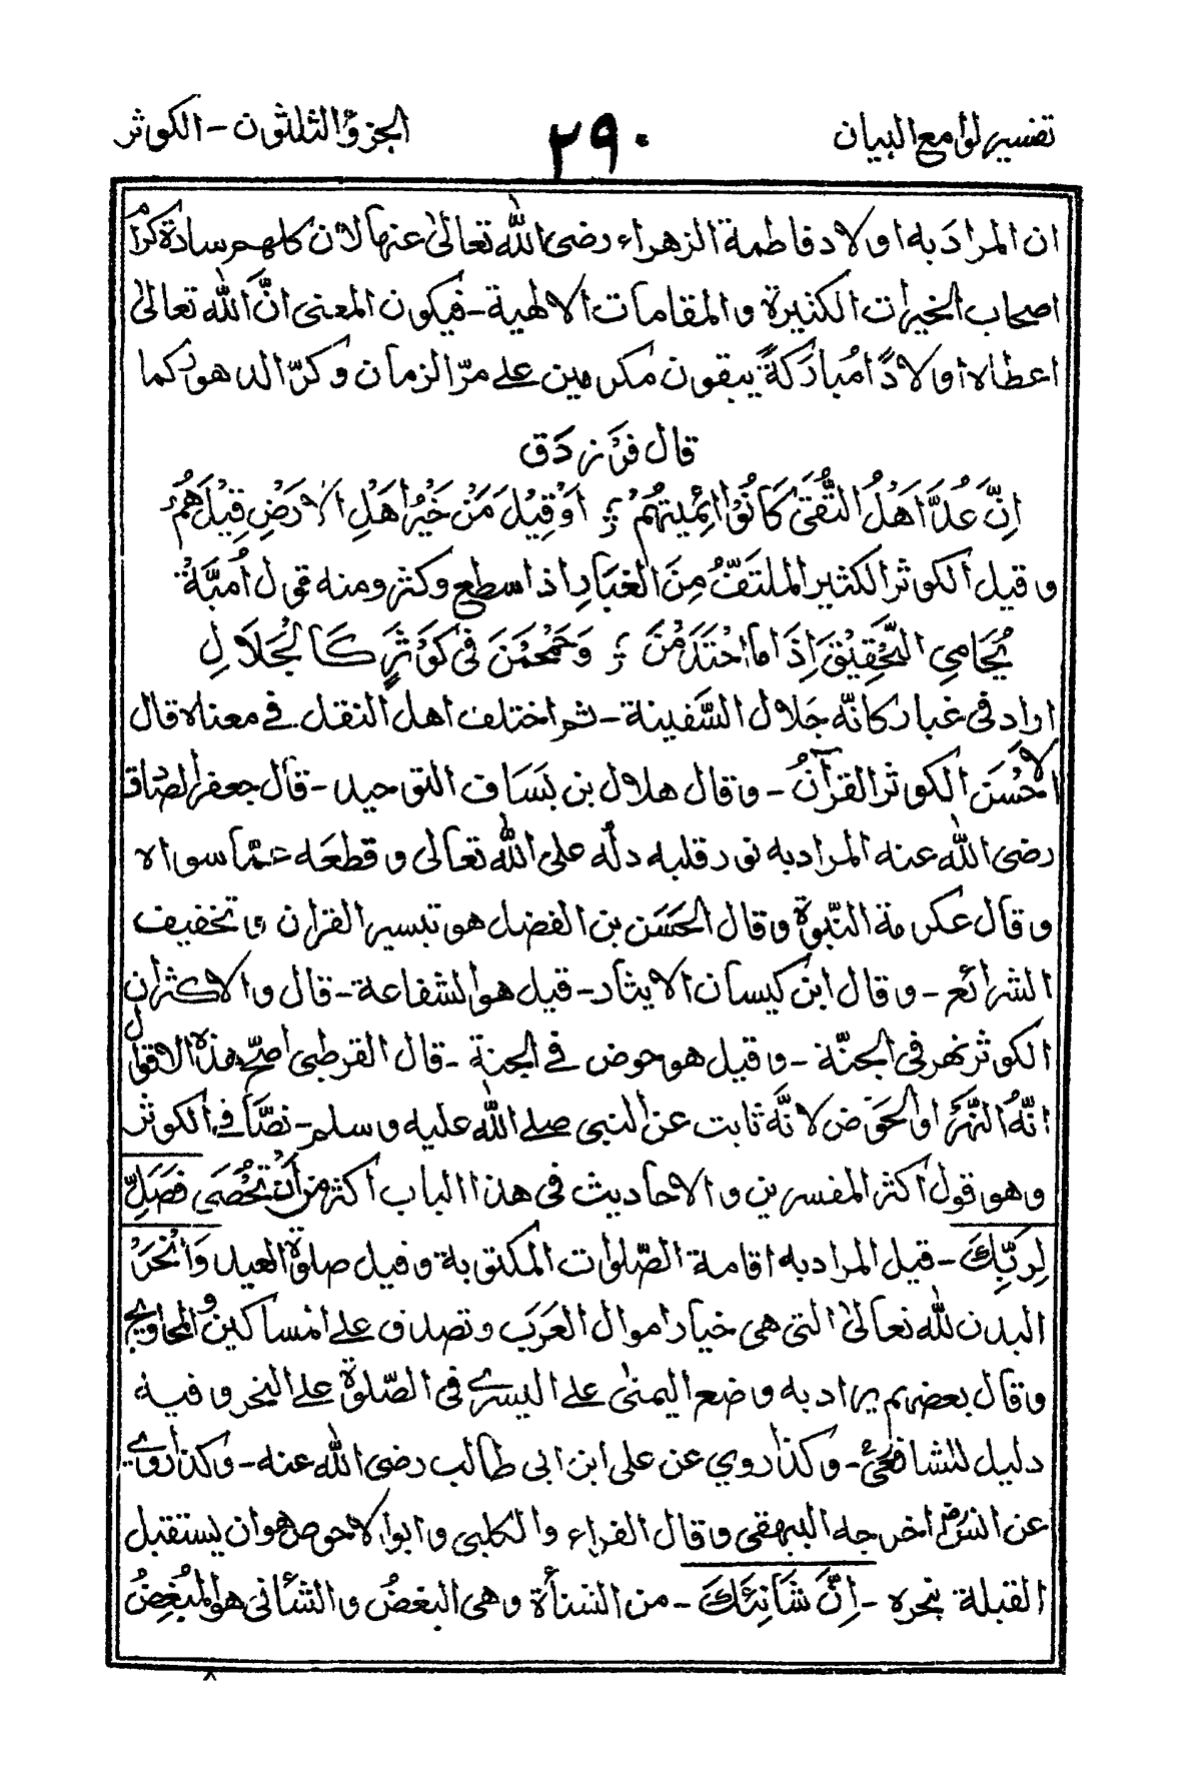 تفسير لوامع البيان ٢٩٠ الجزؤ الثلثون - الكوثر
ان المرادَ به اولاد فاطمة الزهراء رضى الله تعالىٰ عنها لان كلهم سادة كرامٌ
اصحاب الخيرات الكثيرة والمقامات الالٰهية - فيكون المعنى انَّ الله تعالىٰ
اعطاه اولادًا مُبارَكةً يبقون مكرمين على مرّ الزمان وكرّ الدهور كما
قال فرزدق
اِنَّ عُدَّ اَهْلُ التُّقَىٰ كَانُوْا ائِمَّتِهُمْ ؛ اَوْ قِيْلَ مَنْ خَيْرُ اَهْلِ الْاَرْضِ قِيْلَ هُمُ
وقيل الكوثر الكثير الملتَفُّ مِنَ الغبَارِ اذا سطع وكثر ومنه قول اُمبَّةْ
يُحَامِي الْحَقِيْقَ اِذَا مَا احْتَدَمْنَ ؛ وَحَمْحَمْنَ فِى كَوْثَرٍ كَالْجَلَالِ
اراد فى غبار كانّه جَلال السَّفينة - ثم اختلف اهل النقل فى معناه قال
الْحَسَنُ الكوثر القرآنُ - وقال هلال بن يَسَاف التوحيد - قال جعفر الصادق
رضى الله عنه المراد به نور قلبه دلّه على الله تعالى وقطعَه عمّا سواه
وقال عكرمة النّبوة وقال الحَسَن بن الفضل هو تيسير القران وتخفيف
الشرائع - وقال ابن كيسان الايثار - قيل هو الشفاعة - قال والاكثران
الكوثر نهر فى الجنّة - وقيل هو حوض فى الجنة - قال القرطبى اصحّ هذه الاقوال
انّهُ النّهَرُ او الحَوْض لانَّهُ ثابت عن النبى صلى الله عليه وسلم - نصًّا فى الكوثر
وهو قول اكثر المفسرين والاحاديث فى هذا الباب اكثر من اَنْ تُحْصَى فَصَلِّ
لِرَبِّكَ - قيل المراد به اقامة الصّلوٰت المكتوبة وقيل صلوٰة العيد وَانْحَرْ
البدن لله تعالىٰ التى هى خيار اموال العَرَب وتصدق على المساكين والمحاويج
وقال بعضهم يراد به وضع اليمنىٰ على اليسرے فى الصّلوٰة على النحر وفيه
دليل للشافعيؒ - وكذا روي عن على ابن ابى طالب رضى الله عنه - وكذا روے
عن انسؓ اخرجه البيهقى وقال الفراء والكلبى وابو الاحوص هو ان يستقبل
القبلة بنحره - اِنَّ شَانِئَكَ - من الشنأة وهى البغضُ والشّانى هو المُبْغِضُ